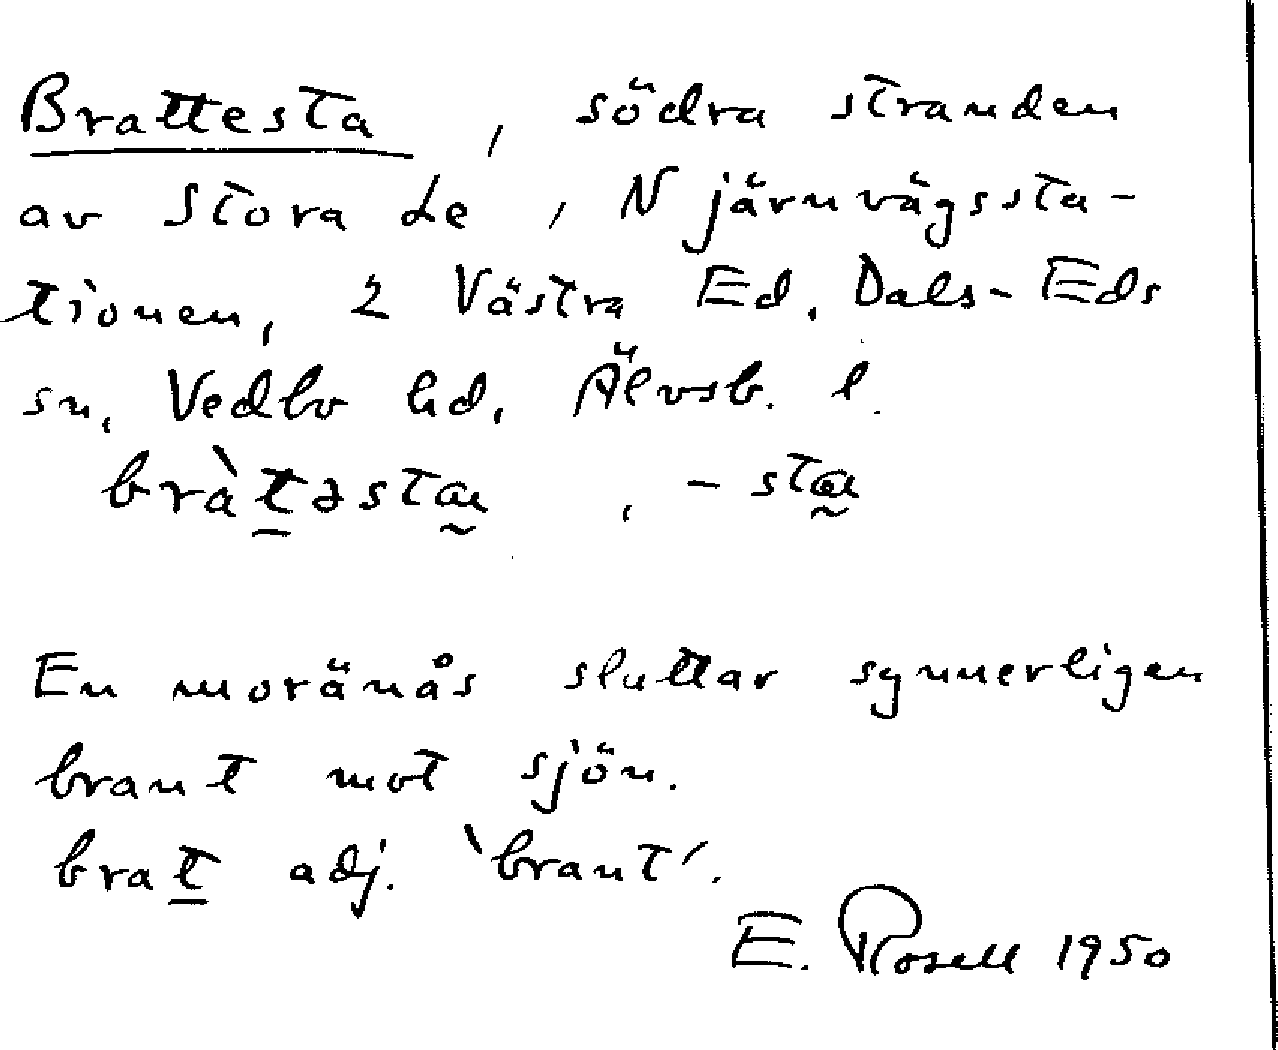 Brattesta, södra stranden
av Stora Le, N järnvägssta-
tionen, 2 Västra Ed, Dals-Eds
sn, Vedbo hd, Älvsb. l.
bràt̲əsta̰, -stæ̰
En moränås sluttar synnerligen
brant mot sjön.
brat̲ adj. 'brant'.
E. Rosell 1950